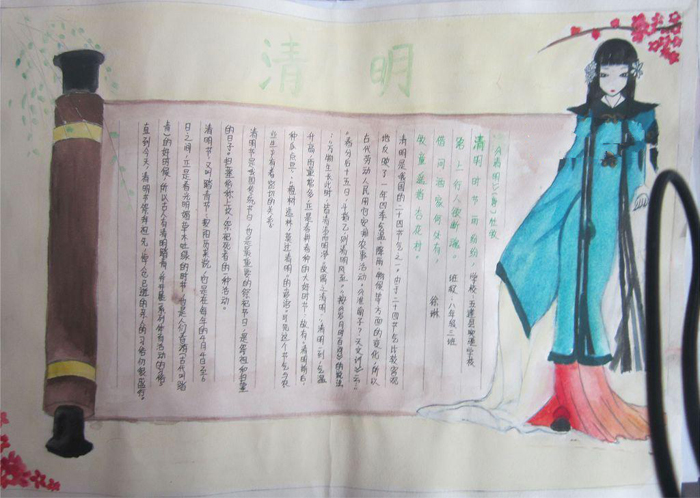 清 明
《清明》(唐)杜牧
清明时节雨纷纷， 学校：五莲县实验学校
路上行人欲断魂。 班级：八年级三班
借问酒家何处有？ 徐琳
牧童遥指杏花村。
清明是我国的二十四节气之一。由于二十四节气比较客观
地反映了一年四季气温、降雨、物候等方面的变化，所以
古代劳动人民用它安排农事活动。《淮南子·天文训》云：
“春分后十五日，斗指乙，则清明风至。”按《岁时百问》的说法：
“万物生长此时，皆清洁而明净。故谓之清明。”清明一到，气温
升高，雨量增多，正是春耕春种的大好时节。故有“清明前后，
种瓜点豆”、“植树造林，莫过清明”的农谚。可见这个节气与农
业生产有着密切的关系。
清明节是我国传统节日，也是最重要的祭祀节日，是祭祖和扫墓
的日子。扫墓俗称上坟，祭祀死者的一种活动。
清明节，又叫踏青节，按阳历来说，它是在每年的4月4日至6
日之间，正是春光明媚草木吐绿的时节，也是人们春游(古代叫踏
青)的好时候，所以古人有清明踏青，并开展一系列体育活动的习俗。
直到今天，清明节祭拜祖先，悼念已逝的亲人的习俗仍很盛行。